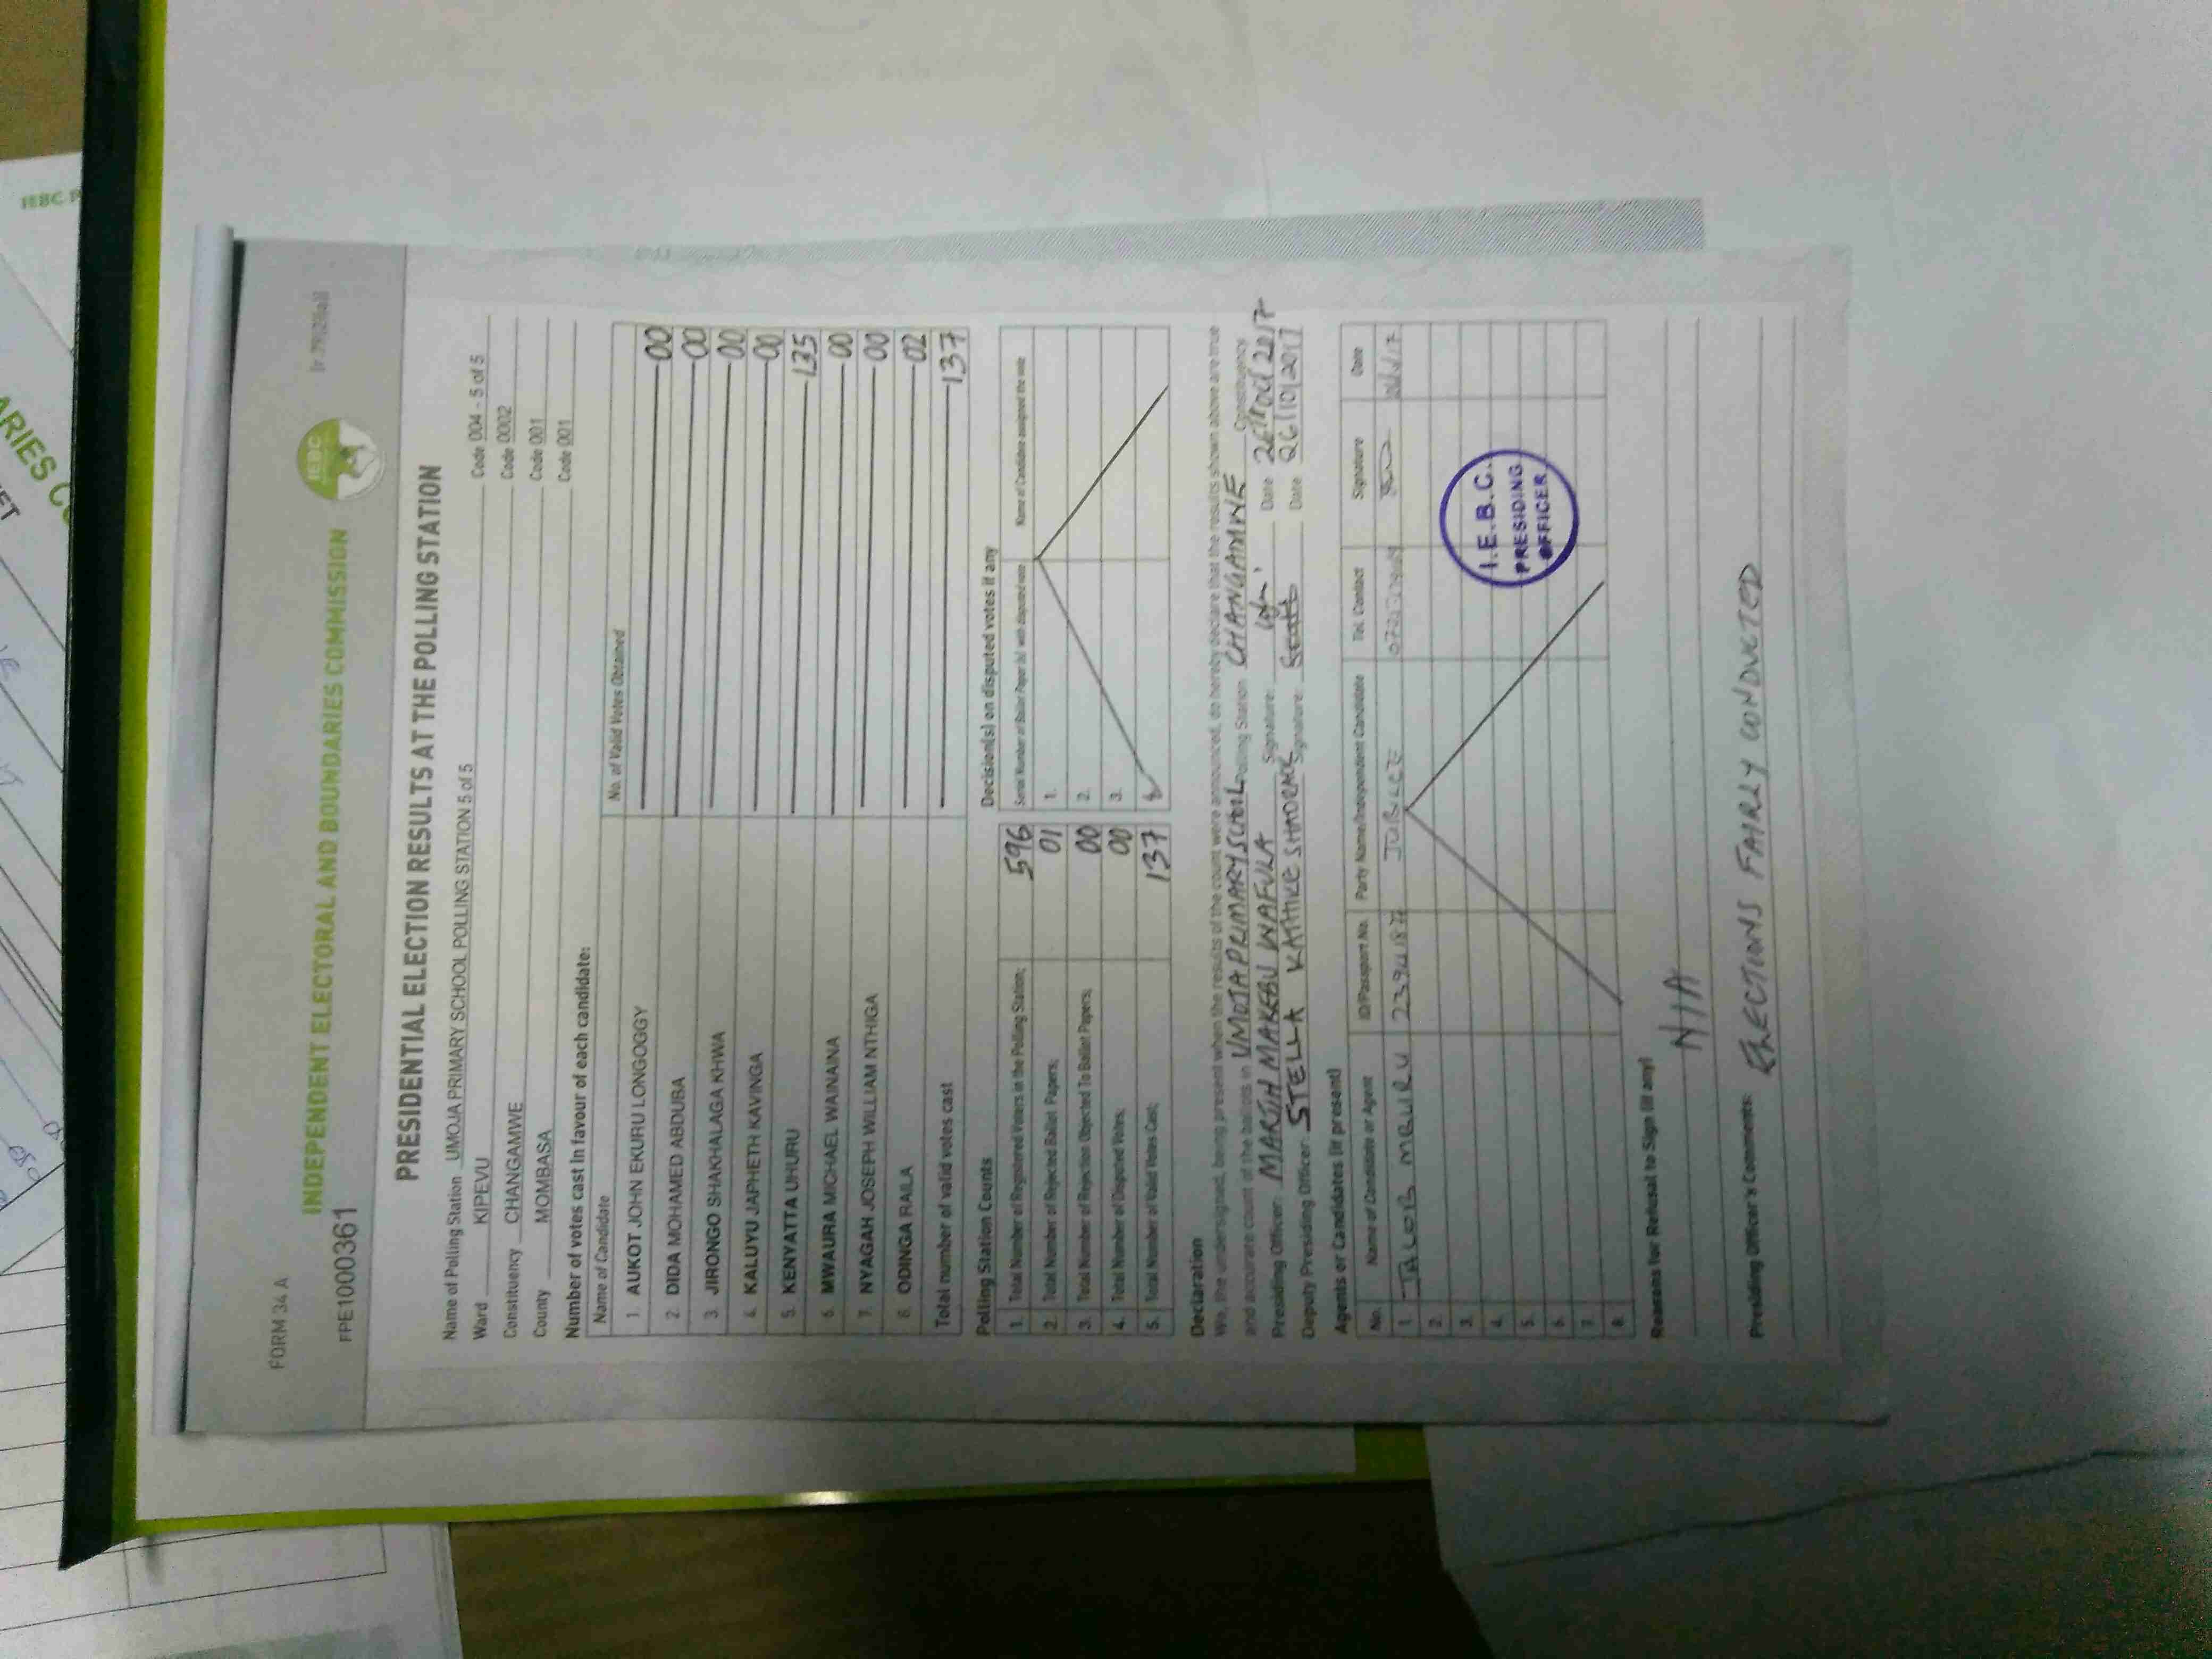 FORM 34 A
INDEPENDENT ELECTORAL AND BOUNDARIES COMMISSION
IEBC
FPE1000361
PRESIDENTIAL ELECTION RESULTS AT THE POLLING STATION
Name of Polling Station UMOJA PRIMARY SCHOOL POLLING STATION 5 of 5 Code 004 - 5 of 5
Ward KIPEVU Code 0002
Constituency CHANGAMWE Code 001
County MOMBASA Code 001
Number of votes cast in favour of each candidate:
Name of Candidate No. of Valid Votes Obtained
1. AUKOT JOHN EKURU LONGOGGY 00
2 DIDA MOHAMED ABDUBA 00
3 JIRONGO SHAKHALAGA KHWA 00
4. KALUYU JAPHETH KAVINGA 00
5. KENYATTA UHURU 135
6 MWAURA MICHAEL WAINAINA 00
7. NYAGAH JOSEPH WILLIAM NTHIGA 00
8 ODINGA RAILA 02
Total number of valid votes cast 137
Polling Station Counts
1. Total Number of Registered Voters in the Polling Station; 596
2. Total Number of Rejected Ballot Papers; 01
3. Total Number of Rejection Objected To Ballot Papers; 00
4. Total Number of Disputed Votes; 00
5. Total Number of Valid Votes Cast; 137
Decision(s) on disputed votes if any
Serial Number of Ballot Paper(s) with disputed vote Name of Candidate assigned the vote
1.
2.
3.
Declaration
We, the undersigned, being present when the results of the count were announced, do hereby declare that the results shown above are true
and accurate count of the ballots in UMOJA PRIMARY SCHOOL Polling Station CHANGAMWE Constituency
Presiding Officer: MARTIN MAKEBU WAFULA Signature: Date 26th Oct 2017
Deputy Presiding Officer: STELLA KATHIKE SHADRACK Signature: Date 26/10/2017
Agents or Candidates (if present)
No. Name of Candidate or Agent ID/Passport No. Party Name/Independent Candidate Tel. Contact Signature Date
1. JACOB MBURU JUBILEE
2.
3.
4.
5.
6.
7.
8.
I.E.B.C.
PRESIDING
OFFICER
Reasons for Refusal to Sign (if any)
N/A
Presiding Officer's Comments:
ELECTIONS FAIRLY CONDUCTED